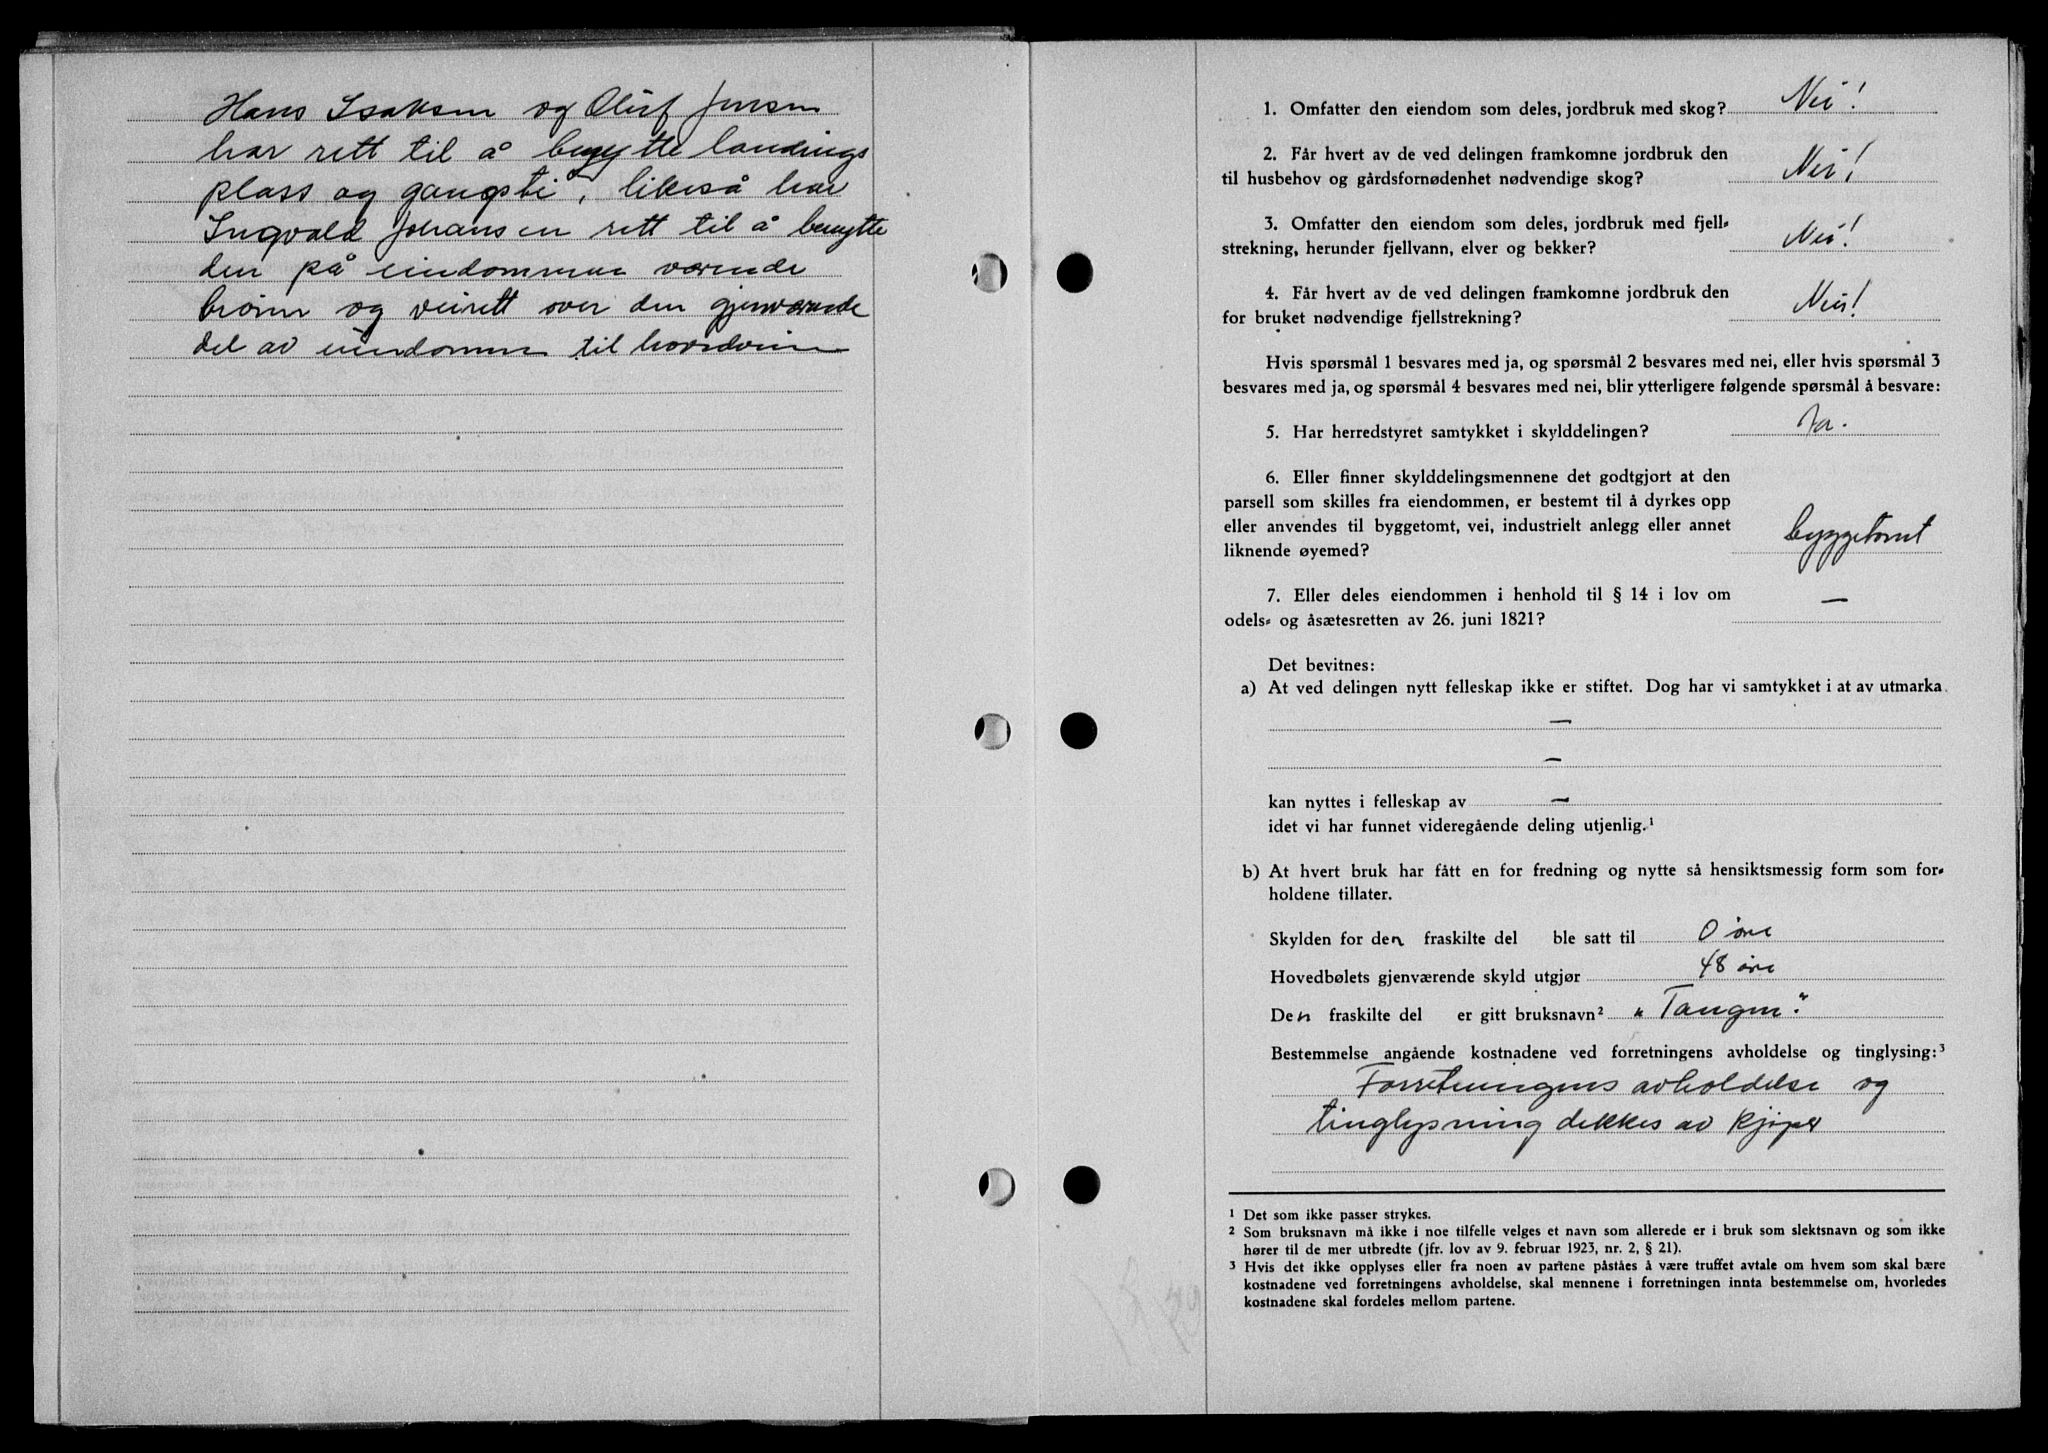 Hans Isaksen og Oluf Jensen
har rett til å benytte landings
plass og gangsti, likeså har
Ingvald Johansen rett til å benytte
den på eiendommen værende
brønn og veirett over den gjenværende
del av eiendommen til hovedveien
1. Omfatter den eiendom som deles, jordbruk med skog? Nei!
2. Får hvert av de ved delingen framkomne jordbruk den
til husbehov og gårdsfornødenhet nødvendige skog? Nei!
3. Omfatter den eiendom som deles, jordbruk med fjell-
strekning, herunder fjellvann, elver og bekker? Nei!
4. Får hvert av de ved delingen framkomne jordbruk den
for bruket nødvendige fjellstrekning? Nei!
Hvis spørsmål 1 besvares med ja, og spørsmål 2 besvares med nei, eller hvis spørsmål 3
besvares med ja, og spørsmål 4 besvares med nei, blir ytterligere følgende spørsmål å besvare:
5. Har herredstyret samtykket i skylddelingen? Ja.
6. Eller finner skylddelingsmennene det godtgjort at den
parsell som skilles fra eiendommen, er bestemt til å dyrkes opp
eller anvendes til byggetomt, vei, industrielt anlegg eller annet
liknende øyemed? byggetomt
7. Eller deles eiendommen i henhold til § 14 i lov om —
odels- og åsætesretten av 26. juni 1821?
Det bevitnes:
a) At ved delingen nytt felleskap ikke er stiftet. Dog har vi samtykket i at av utmarka
—
—
kan nyttes i felleskap av —
idet vi har funnet videregående deling utjenlig.¹
b) At hvert bruk har fått en for fredning og nytte så hensiktsmessig form som for-
holdene tillater.
Skylden for den fraskilte del ble satt til 0 øre
Hovedbølets gjenværende skyld utgjør 48 øre
Den fraskilte del er gitt bruksnavn² "Tangen".
Bestemmelse angående kostnadene ved forretningens avholdelse og tinglysing:³
Forretningens avholdelse og
tinglysning dekkes av kjøper
¹ Det som ikke passer strykes.
² Som bruksnavn må ikke i noe tilfelle velges et navn som allerede er i bruk som slektsnavn og som ikke
hører til de mer utbredte (jfr. lov av 9. februar 1923, nr. 2, § 21).
³ Hvis det ikke opplyses eller fra noen av partene påståes å være truffet avtale om hvem som skal bære
kostnadene ved forretningens avholdelse, skal mennene i forretningen innta bestemmelse om, hvorledes
kostnadene skal fordeles mellom partene.